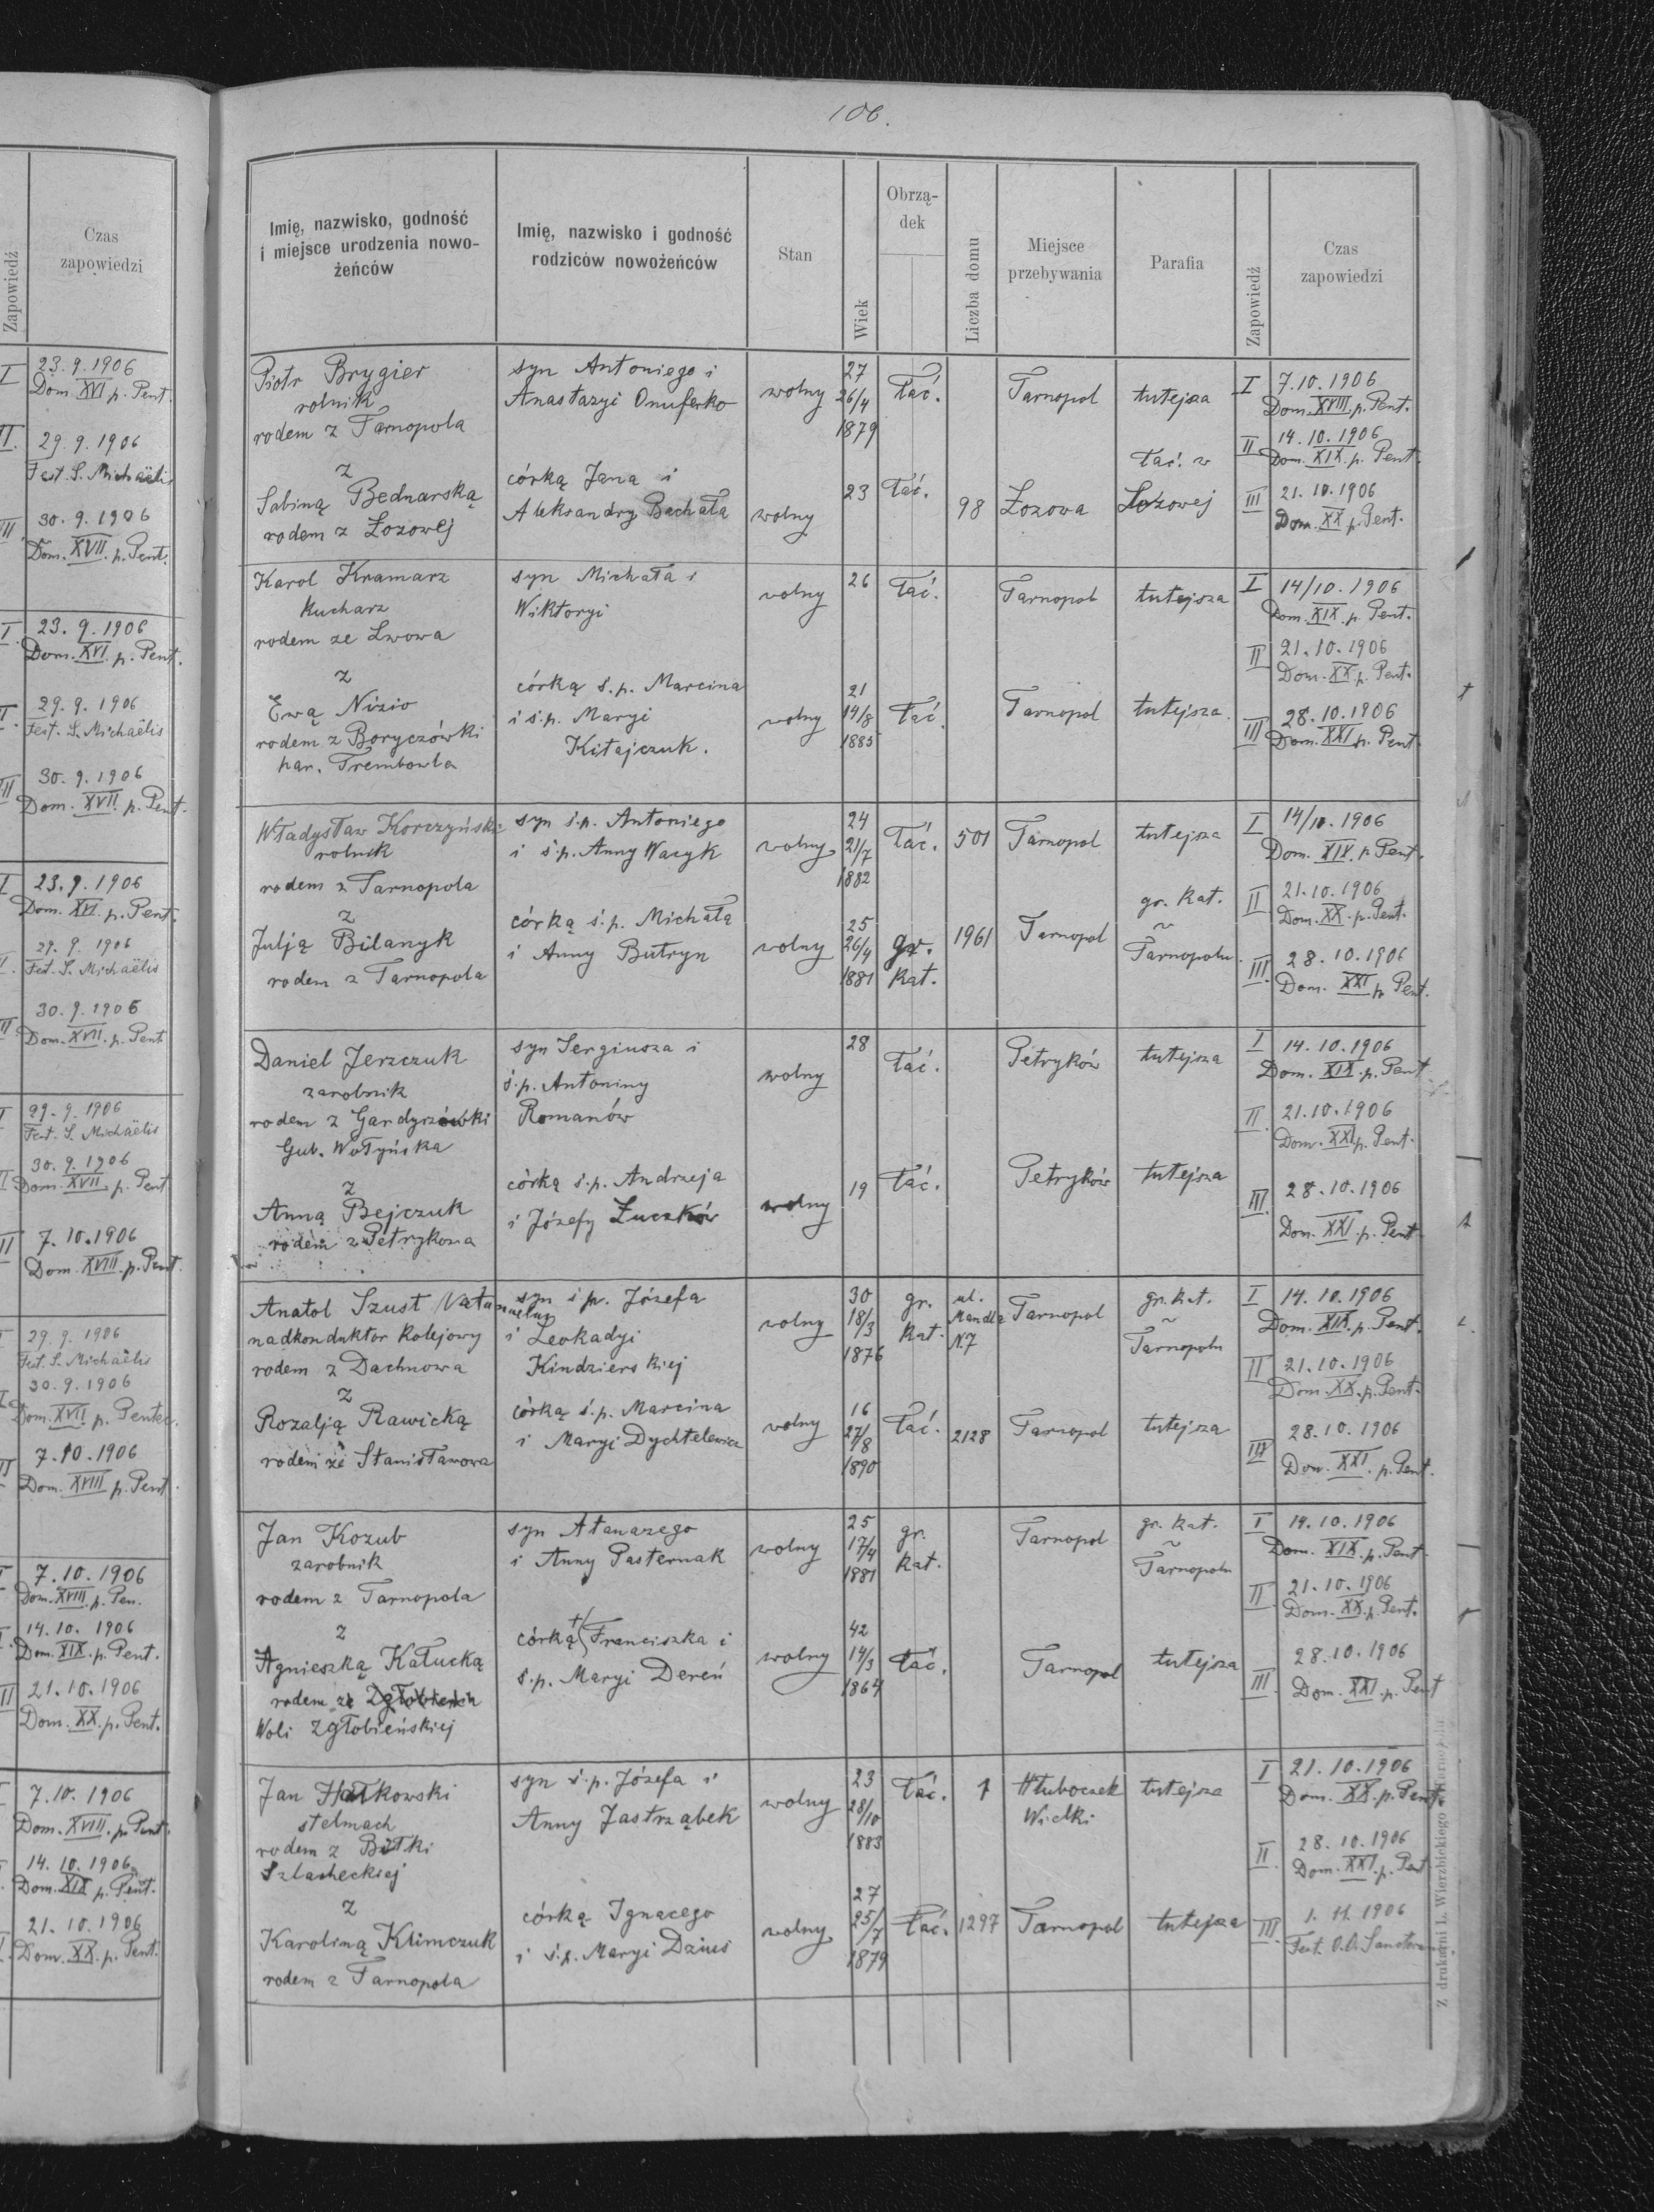 Zapowiedź
Czas
zapowiedzi
I 23.9.1906
Dom. XVI p. Pent.
II. 29.9.1906
Fest. S. Michaëlis
III 30.9.1906
Dom. XVII. p. Pent.
I 23.9.1906
Dom. XVI. p. Pent.
29.9.1906
Fest. S. Michaëlis
III 30.9.1906
Dom. XVII. p. Pent.
I 23.9.1906
Dom. XVI. p. Pent.
29.9.1906
Fest. S. Michaëlis
30.9.1906
Dom. XVII. p. Pent
29.9.1906
Fest. S. Michaëlis
30.9.1906
Dom. XVII. p. Pent
7.10.1906
Dom. XVIII. p. Pent.
29.9.1906
Fest. S. Michaëlis
30.9.1906
Dom. XVII p. Pentec.
7.10.1906
Dom. XVIII p. Pent.
7.10.1906
Dom. XVIII. p. Pen.
14.10.1906
Dom. XIX. p. Pent.
21.10.1906
Dom. XX. p. Pent.
7.10.1906
Dom. XVIII. p. Pent.
14.10.1906
Dom. XIX p. Pent.
21.10.1906
Dom. XX. p. Pent.
106.
Imię, nazwisko, godność
i miejsce urodzenia nowo-
żeńców
Imię, nazwisko i godność
rodziców nowożeńców
Stan
Wiek
Obrzą-
dek
Liczba domu
Miejsce
przebywania
Parafia
Zapowiedź
Czas
zapowiedzi
Piotr Brygier
rolnik
rodem z Tarnopola
syn Antoniego i
Anastazyi Onuferko
wolny
27
26/4
1879
łać.
Tarnopol
tutejsza
I 7.10.1906
Dom. XVIII. p. Pent.
II 14.10.1906
Dom. XIX. p. Pent.
z
Sabiną Bednarską
rodem z Łozowej
córką Jana i
Aleksandry Bachała
wolny
23
łać.
98
Łozowa
łać. w
Łozowej
III 21.10.1906
Dom. XX p. Pent.
Karol Kramarz
kucharz
rodem ze Lwowa
syn Michała i
Wiktoryi
wolny
26
łać.
Tarnopol
tutejsza
I 14/10.1906
Dom. XIX. p. Pent.
II 21.10.1906
Dom. XX. p. Pent.
z
Ewą Nizio
rodem z Boryczówki
par. Trembowla
córką ś.p. Marcina
i ś.p. Maryi
Kitajczuk.
wolny
21
14/8
1885
łać.
Tarnopol
tutejsza.
III 28.10.1906
Dom. XXI. p. Pent.
Władysław Korczyński
rolnik
rodem z Tarnopola
syn ś.p. Antoniego
i ś.p. Anny Wacyk
wolny
24
21/7
1882
łać.
501
Tarnopol
tutejsza
I 14/10.1906
Dom. XIX. p. Pent.
II 21.10.1906
Dom. XX. p. Pent.
z
Julją Bilanyk
rodem z Tarnopola
córką ś.p. Michała
i Anny Butryn
wolny
25
26/4
1881
gr.
kat.
1961
Tarnopol
gr. kat.
w
Tarnopolu.
III. 28.10.1906
Dom. XXI p. Pent.
Daniel Jerzczuk
zarobnik
rodem z Gardyszówki
Gub. Wołyńska
syn Sergiusza i
ś.p. Antoniny
Romanów
wolny
28
łać.
Petryków
tutejsza
I 14.10.1906
Dom. XIX. p. Pent
II. 21.10.1906
Dom. XX p. Pent.
z
Anną Bejczuk
rodem z Petrykowa
córką ś.p. Andrzeja
i Józefy Łuczków
wolny
19
łać.
Petryków
tutejsza
III. 28.10.1906
Dom. XXI. p. Pent.
Anatol Szust
nadkonduktor kolejowy
rodem z Dachnowa
syn ś.p. Józefa
i Leokadyi
Kindzierskiej
wolny
30
18/3
1876
gr.
kat.
ul.
Mandla
N.7
Tarnopol
gr. kat.
w
Tarnopolu
I 14.10.1906
Dom. XIX. p. Pent.
II 21.10.1906
Dom. XX. p. Pent.
z
Rozalją Rawicką
rodem ze Stanisławowa
córką ś.p. Marcina
i Maryi Dychtelewicz
wolny
16
27/8
1890
łać.
2128
Tarnopol
tutejsza
III 28.10.1906
Dom. XXI. p. Pent.
Jan Kozub
zarobnik
rodem z Tarnopola
syn Atanazego
i Anny Pasternak
wolny
25
17/4
1881
gr.
kat.
Tarnopol
gr. kat.
w
Tarnopolu
I 14.10.1906
Dom. XIX. p. Pent.
II. 21.10.1906
Dom. XX. p. Pent.
z
Agnieszką Kałucką
rodem ze
Woli Zgłobieńskiej
córką † Franciszka i
ś.p. Maryi Dereń
wolny
42
14/3
1864
łać.
Tarnopol
tutejsza
III. 28.10.1906
Dom. XXI. p. Pent
Jan Hałkowski
stelmach
rodem z Biłki
Szlacheckiej
syn ś.p. Józefa i
Anny Jastrząbek
wolny
23
28/10
1883
łać.
1
Hłuboczek
Wielki
tutejsza
I 21.10.1906
Dom. XX. p. Pent.
II 28.10.1906
Dom. XXI. p. Pent
z
Karoliną Klimczuk
rodem z Tarnopola
córką Ignacego
i ś.p. Maryi Dzius
wolny
27
25/7
1879
łać.
1297
Tarnopol
tutejsza
III. 1.11.1906
Fest. O.O. Sanctorum
Z drukarni L. Wierzbickiego w Tarnopolu